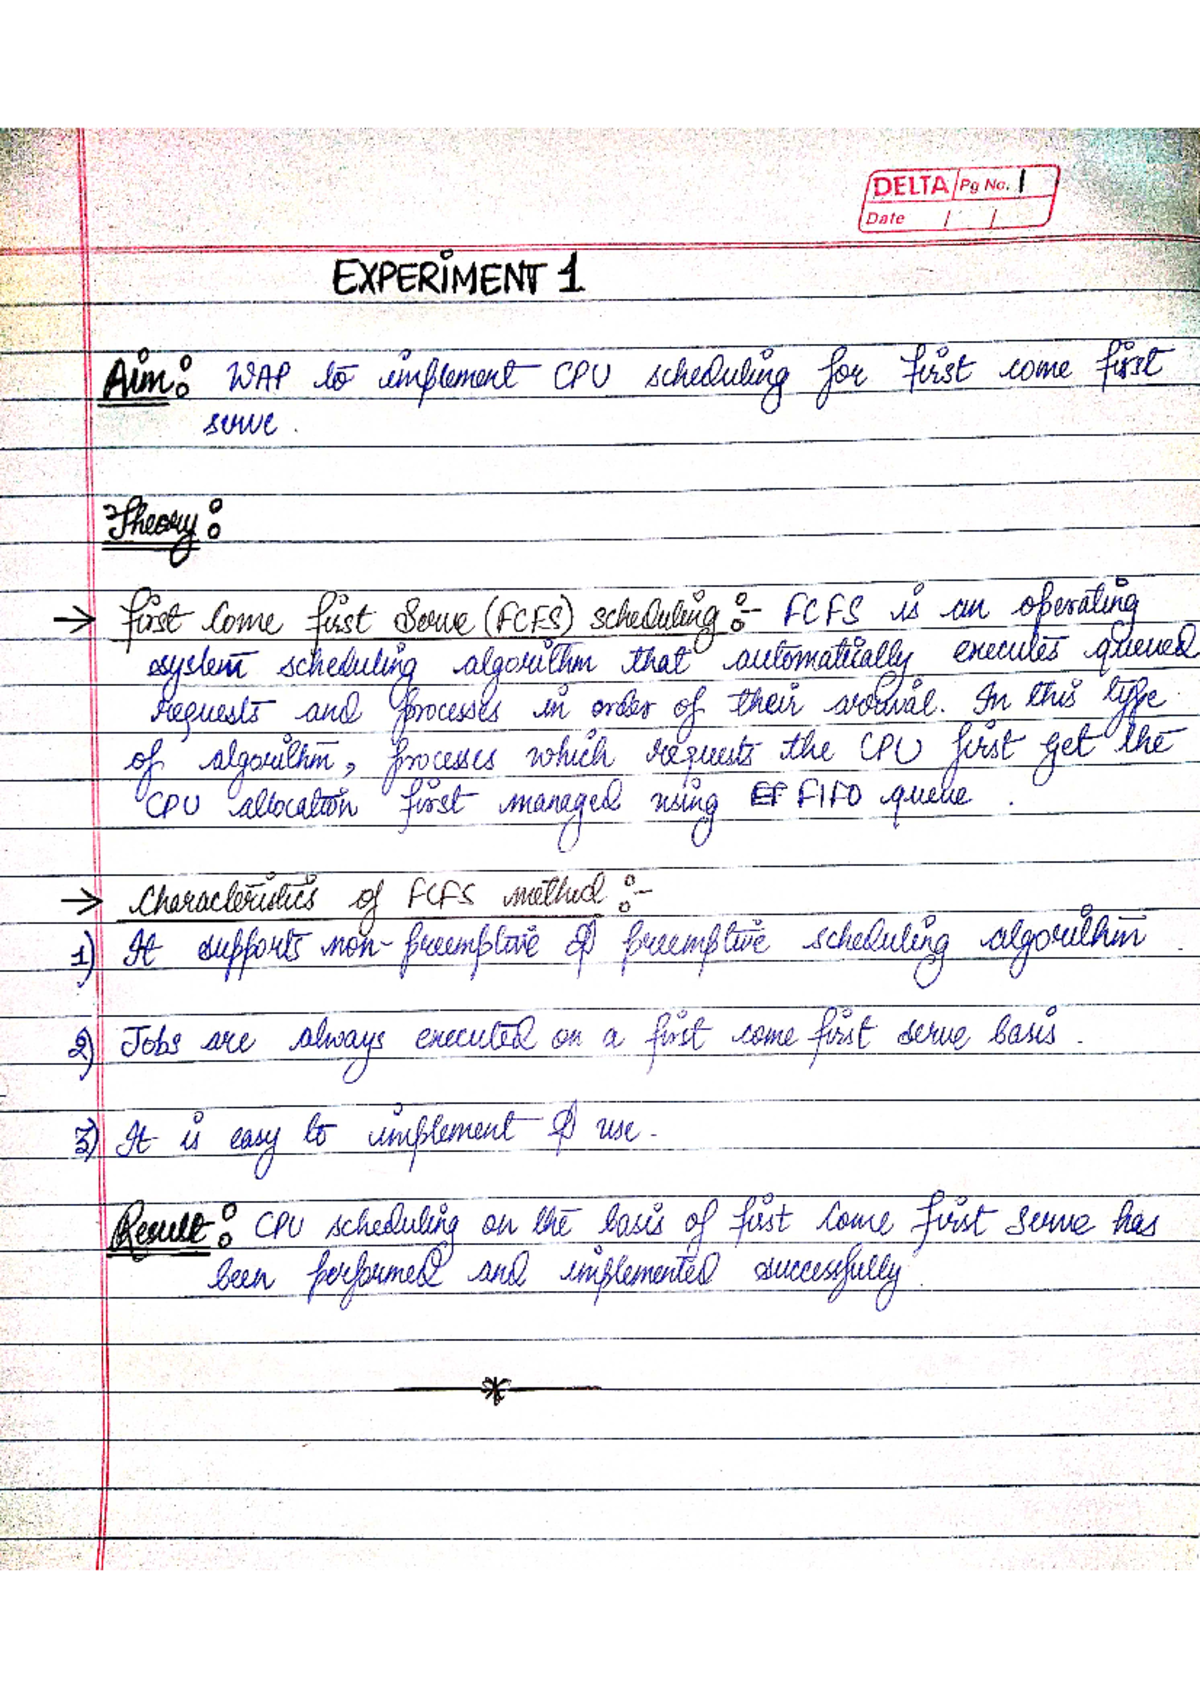 DELTA Pg No. 1
Date / /
EXPERIMENT 1
Aim: WAP to implement CPU scheduling for first come first
serve.
Theory:
→ First Come First Serve (FCFS) scheduling :- FCFS is an operating
system scheduling algorithm that automatically executes queued
requests and processes in order of their arrival. In this type
of algorithm, processes which requests the CPU first get the
CPU allocation first managed using FIFO queue.
→ Characteristics of FCFS method :-
1) It supports non-preemptive & preemptive scheduling algorithm.
2) Jobs are always executed on a first come first serve basis.
3) It is easy to implement & use.
Result: CPU scheduling on the basis of first come first serve has
been performed and implemented successfully.